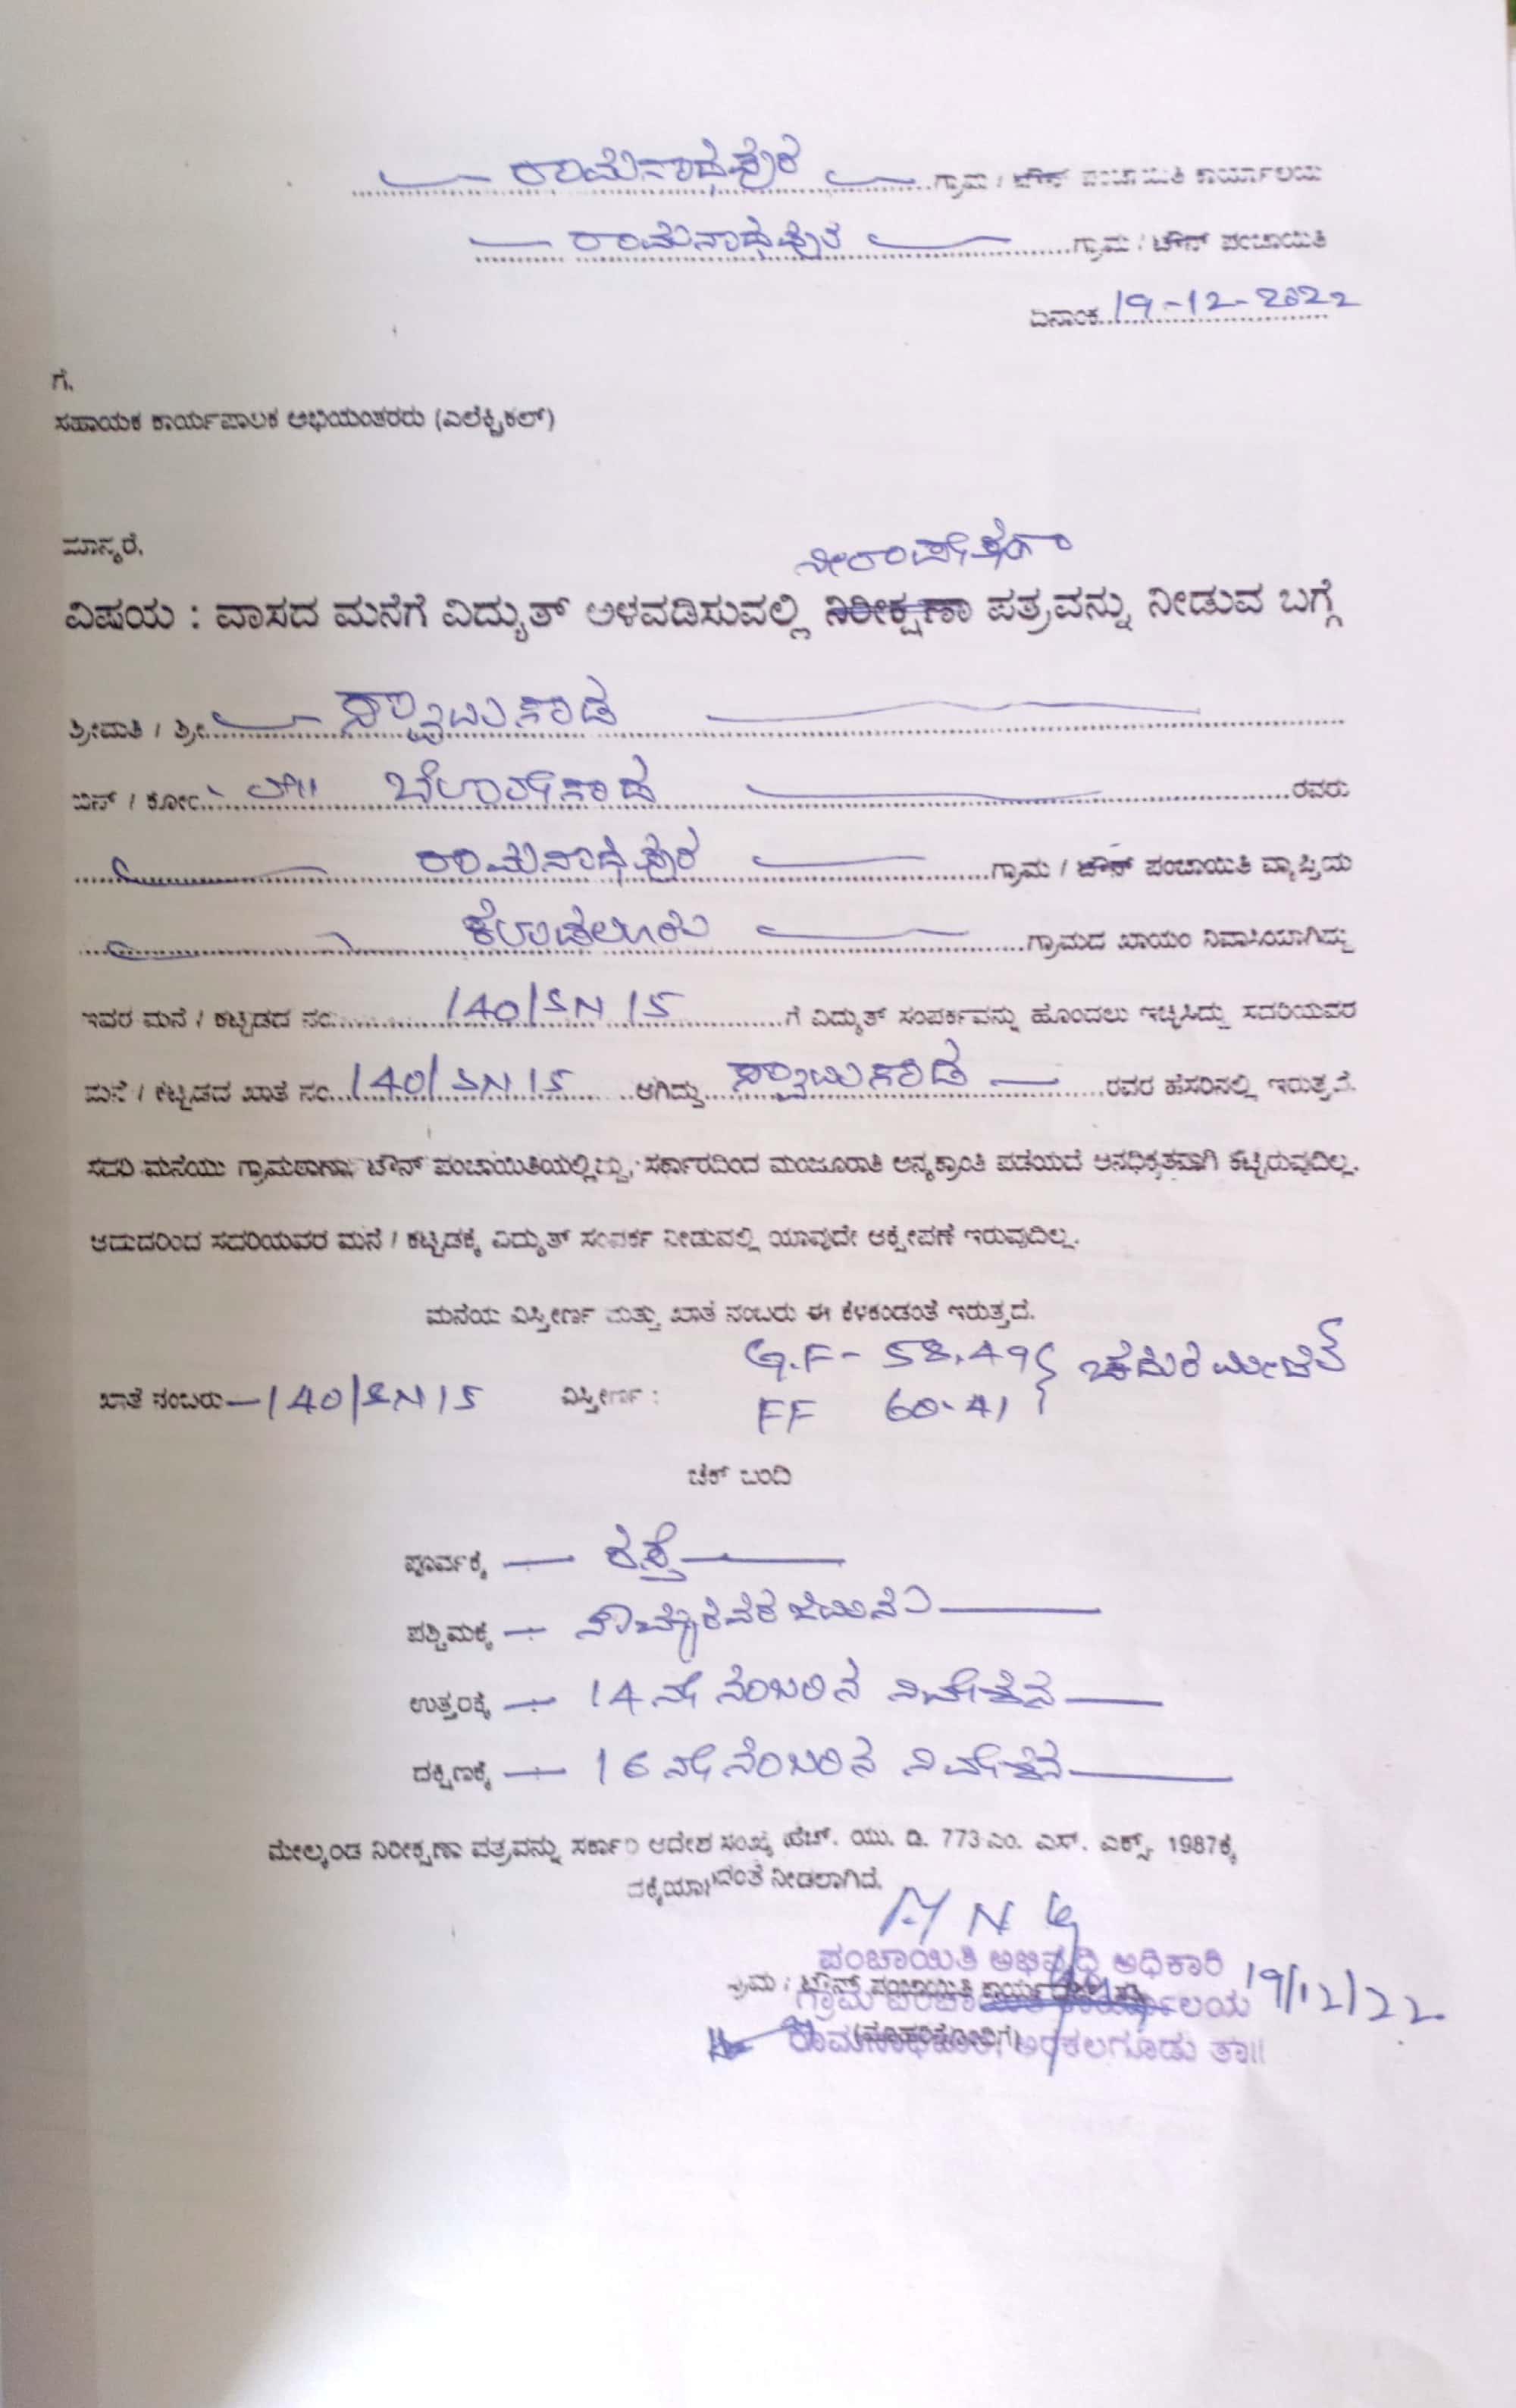 ರಾಮನಾಥಪುರ ಗ್ರಾಮ / ಟೌನ್ ಪಂಚಾಯಿತಿ ಕಾರ್ಯಾಲಯ
ರಾಮನಾಥಪುರ ಗ್ರಾಮ / ಟೌನ್ ಪಂಚಾಯಿತಿ
ದಿನಾಂಕ 19-12-2022
ಗೆ,
ಸಹಾಯಕ ಕಾರ್ಯಪಾಲಕ ಅಭಿಯಂತರರು (ಎಲೆಕ್ಟ್ರಿಕಲ್)
ಮಾನ್ಯರೆ,
ನಿರಾಪೇಕ್ಷಣಾ
ವಿಷಯ : ವಾಸದ ಮನೆಗೆ ವಿದ್ಯುತ್ ಅಳವಡಿಸುವಲ್ಲಿ ನಿರೀಕ್ಷಣಾ ಪತ್ರವನ್ನು ನೀಡುವ ಬಗ್ಗೆ
ಶ್ರೀಮತಿ / ಶ್ರೀ
ಬಿನ್ / ಕೋಂ ರವರು
ರಾಮನಾಥಪುರ ಗ್ರಾಮ / ಟೌನ್ ಪಂಚಾಯಿತಿ ವ್ಯಾಪ್ತಿಯ
ಗ್ರಾಮದ ಖಾಯಂ ನಿವಾಸಿಯಾಗಿದ್ದು
ಇವರ ಮನೆ / ಕಟ್ಟಡದ ನಂ 140/SN 15 ಗೆ ವಿದ್ಯುತ್ ಸಂಪರ್ಕವನ್ನು ಹೊಂದಲು ಇಚ್ಛಿಸಿದ್ದು ಸದರಿಯವರ
ಮನೆ / ಕಟ್ಟಡದ ಖಾತೆ ನಂ 140/SN 15 ಆಗಿದ್ದು ರವರ ಹೆಸರಿನಲ್ಲಿ ಇರುತ್ತದೆ.
ಸದರಿ ಮನೆಯು ಗ್ರಾಮಠಾಣಾ ಟೌನ್ ಪಂಚಾಯಿತಿಯಲ್ಲಿದ್ದು, ಸರ್ಕಾರದಿಂದ ಮಂಜೂರಾತಿ ಅನ್ಯಕ್ರಾಂತಿ ಪಡೆಯದೆ ಅನಧಿಕೃತವಾಗಿ ಕಟ್ಟಿರುವುದಿಲ್ಲ.
ಆದುದರಿಂದ ಸದರಿಯವರ ಮನೆ / ಕಟ್ಟಡಕ್ಕೆ ವಿದ್ಯುತ್ ಸಂಪರ್ಕ ನೀಡುವಲ್ಲಿ ಯಾವುದೇ ಆಕ್ಷೇಪಣೆ ಇರುವುದಿಲ್ಲ.
ಮನೆಯ ವಿಸ್ತೀರ್ಣ ಮತ್ತು ಖಾತೆ ನಂಬರು ಈ ಕೆಳಕಂಡಂತೆ ಇರುತ್ತದೆ.
ಖಾತೆ ನಂಬರು - 140/SN 15 ವಿಸ್ತೀರ್ಣ : G.F - 58.49 ಚದುರ ಮೀಟರ್
FF 60.41
ಚೆಕ್ ಬಂದಿ
ಪೂರ್ವಕ್ಕೆ - ರಸ್ತೆ
ಪಶ್ಚಿಮಕ್ಕೆ - ಜಮೀನು
ಉತ್ತರಕ್ಕೆ - 14 ನೇ ನಂಬರಿನ ನಿವೇಶನ
ದಕ್ಷಿಣಕ್ಕೆ - 16 ನೇ ನಂಬರಿನ ನಿವೇಶನ
ಮೇಲ್ಕಂಡ ನಿರೀಕ್ಷಣಾ ಪತ್ರವನ್ನು ಸರ್ಕಾರಿ ಆದೇಶ ಸಂಖ್ಯೆ ಹೆಚ್. ಯು. ಡಿ. 773 ಎಂ. ಎಸ್. ಎಕ್ಸ್. 1987ಕ್ಕೆ
ನೀಡಲಾಗಿದೆ.
ಪಂಚಾಯಿತಿ ಅಭಿವೃದ್ಧಿ ಅಧಿಕಾರಿ
19/12/22
ಗ್ರಾಮ ಪಂಚಾಯಿತಿ ಕಾರ್ಯಾಲಯ
ರಾಮನಾಥಪುರ, ಅರಕಲಗೂಡು ತಾ||